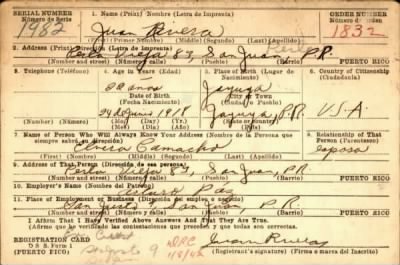 SERIAL NUMBER
Número de Serie
1982
1. Name (Print) Nombre (Letra de Imprenta)
Juan Rivera
(First) (Primer Nombre) (Middle) (Segundo) (Last) (Apellido)
ORDER NUMBER
Número de Orden
1832
2. Address (Print) Dirección (Letra de Imprenta)
Perla Vieja 83, San Juan P.R.
Perla
PUERTO RICO
3. Telephone (Teléfono)
4. Age in Years (Edad)
22 años
Date of Birth
(Fecha Nacimiento)
24 de junio 1918
(Mo.) (Day) (Yr.)
(Mes) (Día) (Año)
5. Place of Birth (Lugar de Nacimiento)
Jayuya
City or Town
(Ciudad o Pueblo)
Jayuya, P.R.
(State or country)
6. Country of Citizenship
(Ciudadanía)
U.S.A.
7. Name of Person Who Will Always Know Your Address (Nombre de la Persona que
siempre sabrá su dirección)
Camacho
(First) (Middle) (Segundo) (Last) (Apellido)
8. Relationship of That
Person (Parentesco)
Esposa
9. Address of That Person (Dirección de esa persona)
Perla Vieja 83, San Juan, P.R.
(Pueblo) (Barrio) PUERTO RICO
10. Employer's Name (Nombre del Patrono)
Arturo
11. Place of Employment or Business (Dirección del empleo o negocio)
San Justo, San Juan P.R.
(Pueblo) (Barrio) PUERTO RICO
I Affirm That I Have Verified Above Answers And That They Are True.
Afirmo que he verificado las contestaciones que preceden y que todas son correctas.
REGISTRATION CARD
Juan Rivera
(Registrant's Signature) (Firma o marca del Inscrito)